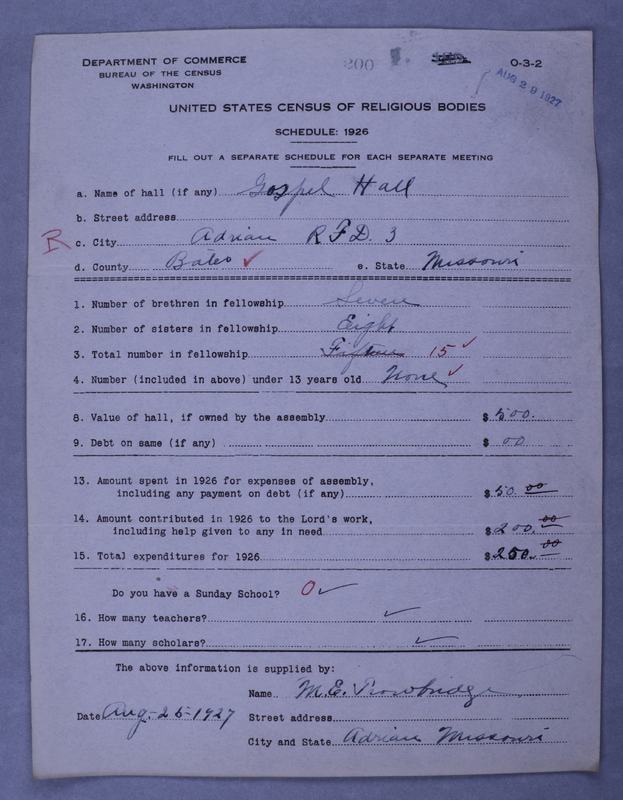 DEPARTMENT OF COMMERCE
BUREAU OF THE CENSUS
WASHINGTON
200
0-3-2
AUG 29 1927
UNITED STATES CENSUS OF RELIGIOUS BODIES
SCHEDULE: 1926
FILL OUT A SEPARATE SCHEDULE FOR EACH SEPARATE MEETING
a. Name of hall (if any) Gospel Hall
b. Street address
R c. City Adrian R F D. 3
d. County Bates ✓ e. State Missouri
1. Number of brethren in fellowship Seven
2. Number of sisters in fellowship Eight
3. Total number in fellowship Fifteen 15 ✓
4. Number (included in above) under 13 years old None ✓
8. Value of hall, if owned by the assembly $ 500.
9. Debt on same (if any) $ 00
13. Amount spent in 1926 for expenses of assembly,
including any payment on debt (if any) $ 50. 00
14. Amount contributed in 1926 to the Lord's work,
including help given to any in need $ 200. 00
15. Total expenditures for 1926 $ 250. 00
Do you have a Sunday School? 0 ✓
16. How many teachers? ✓
17. How many scholars? ✓
The above information is supplied by:
Name M.E. Trowbridge
Date Aug-25-1927 Street address
City and State Adrian Missouri